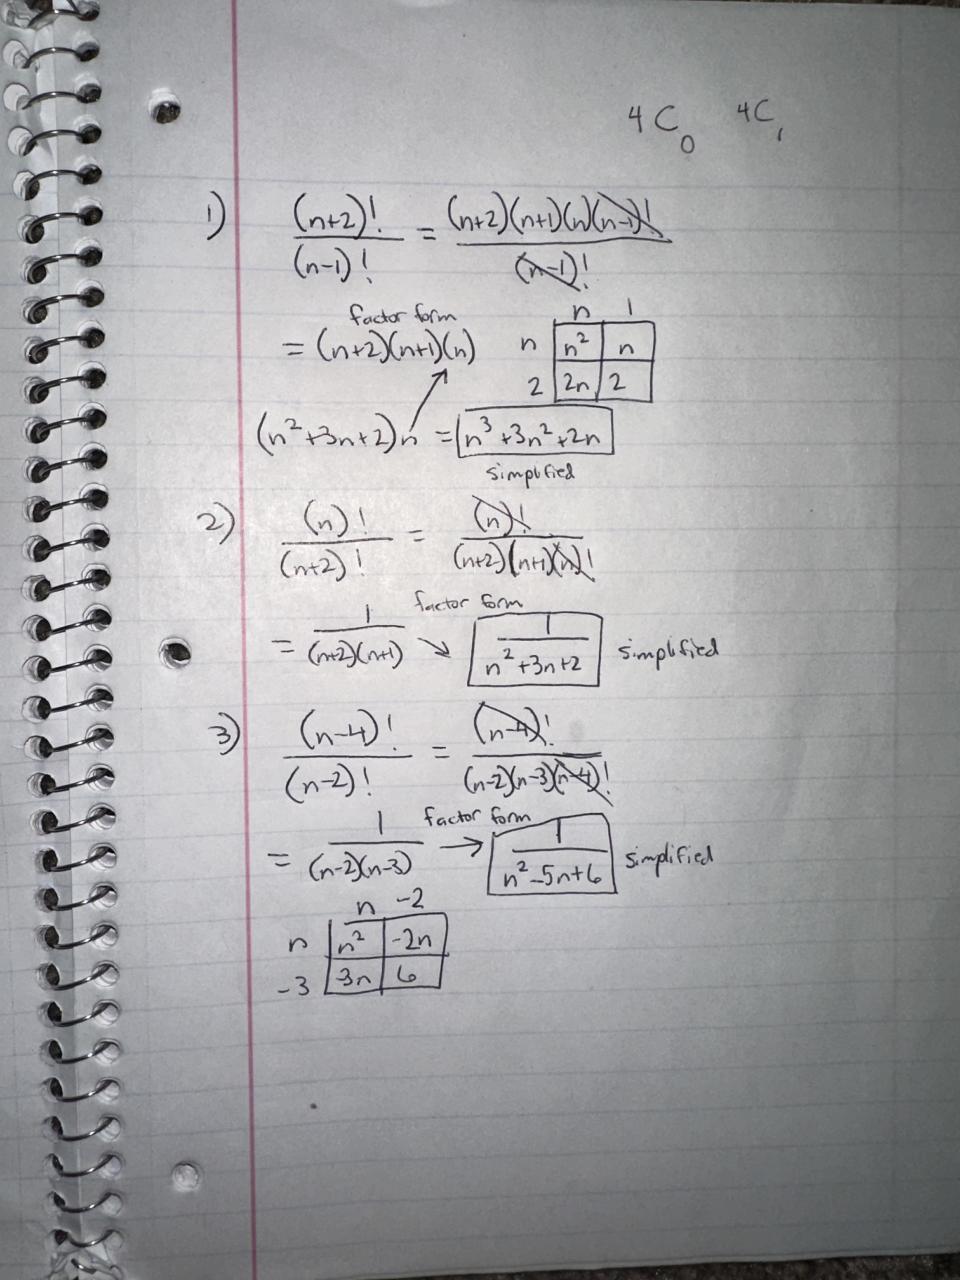 4C₀ 4C₁
1) (n+2)!/(n-1)! = (n+2)(n+1)(n)(n-1)!/(n-1)!
factor form
= (n+2)(n+1)(n)
n 1
n n² n
2 2n 2
(n²+3n+2)n = n³+3n²+2n
simplified
2) (n)!/(n+2)! = (n)!/(n+2)(n+1)(n)!
factor form
= 1/(n+2)(n+1) ↘ 1/n²+3n+2 simplified
3) (n-4)!/(n-2)! = (n-4)!/(n-2)(n-3)(n-4)!
factor form
= 1/(n-2)(n-3) → 1/n²-5n+6 simplified
n -2
n n² -2n
-3 -3n 6